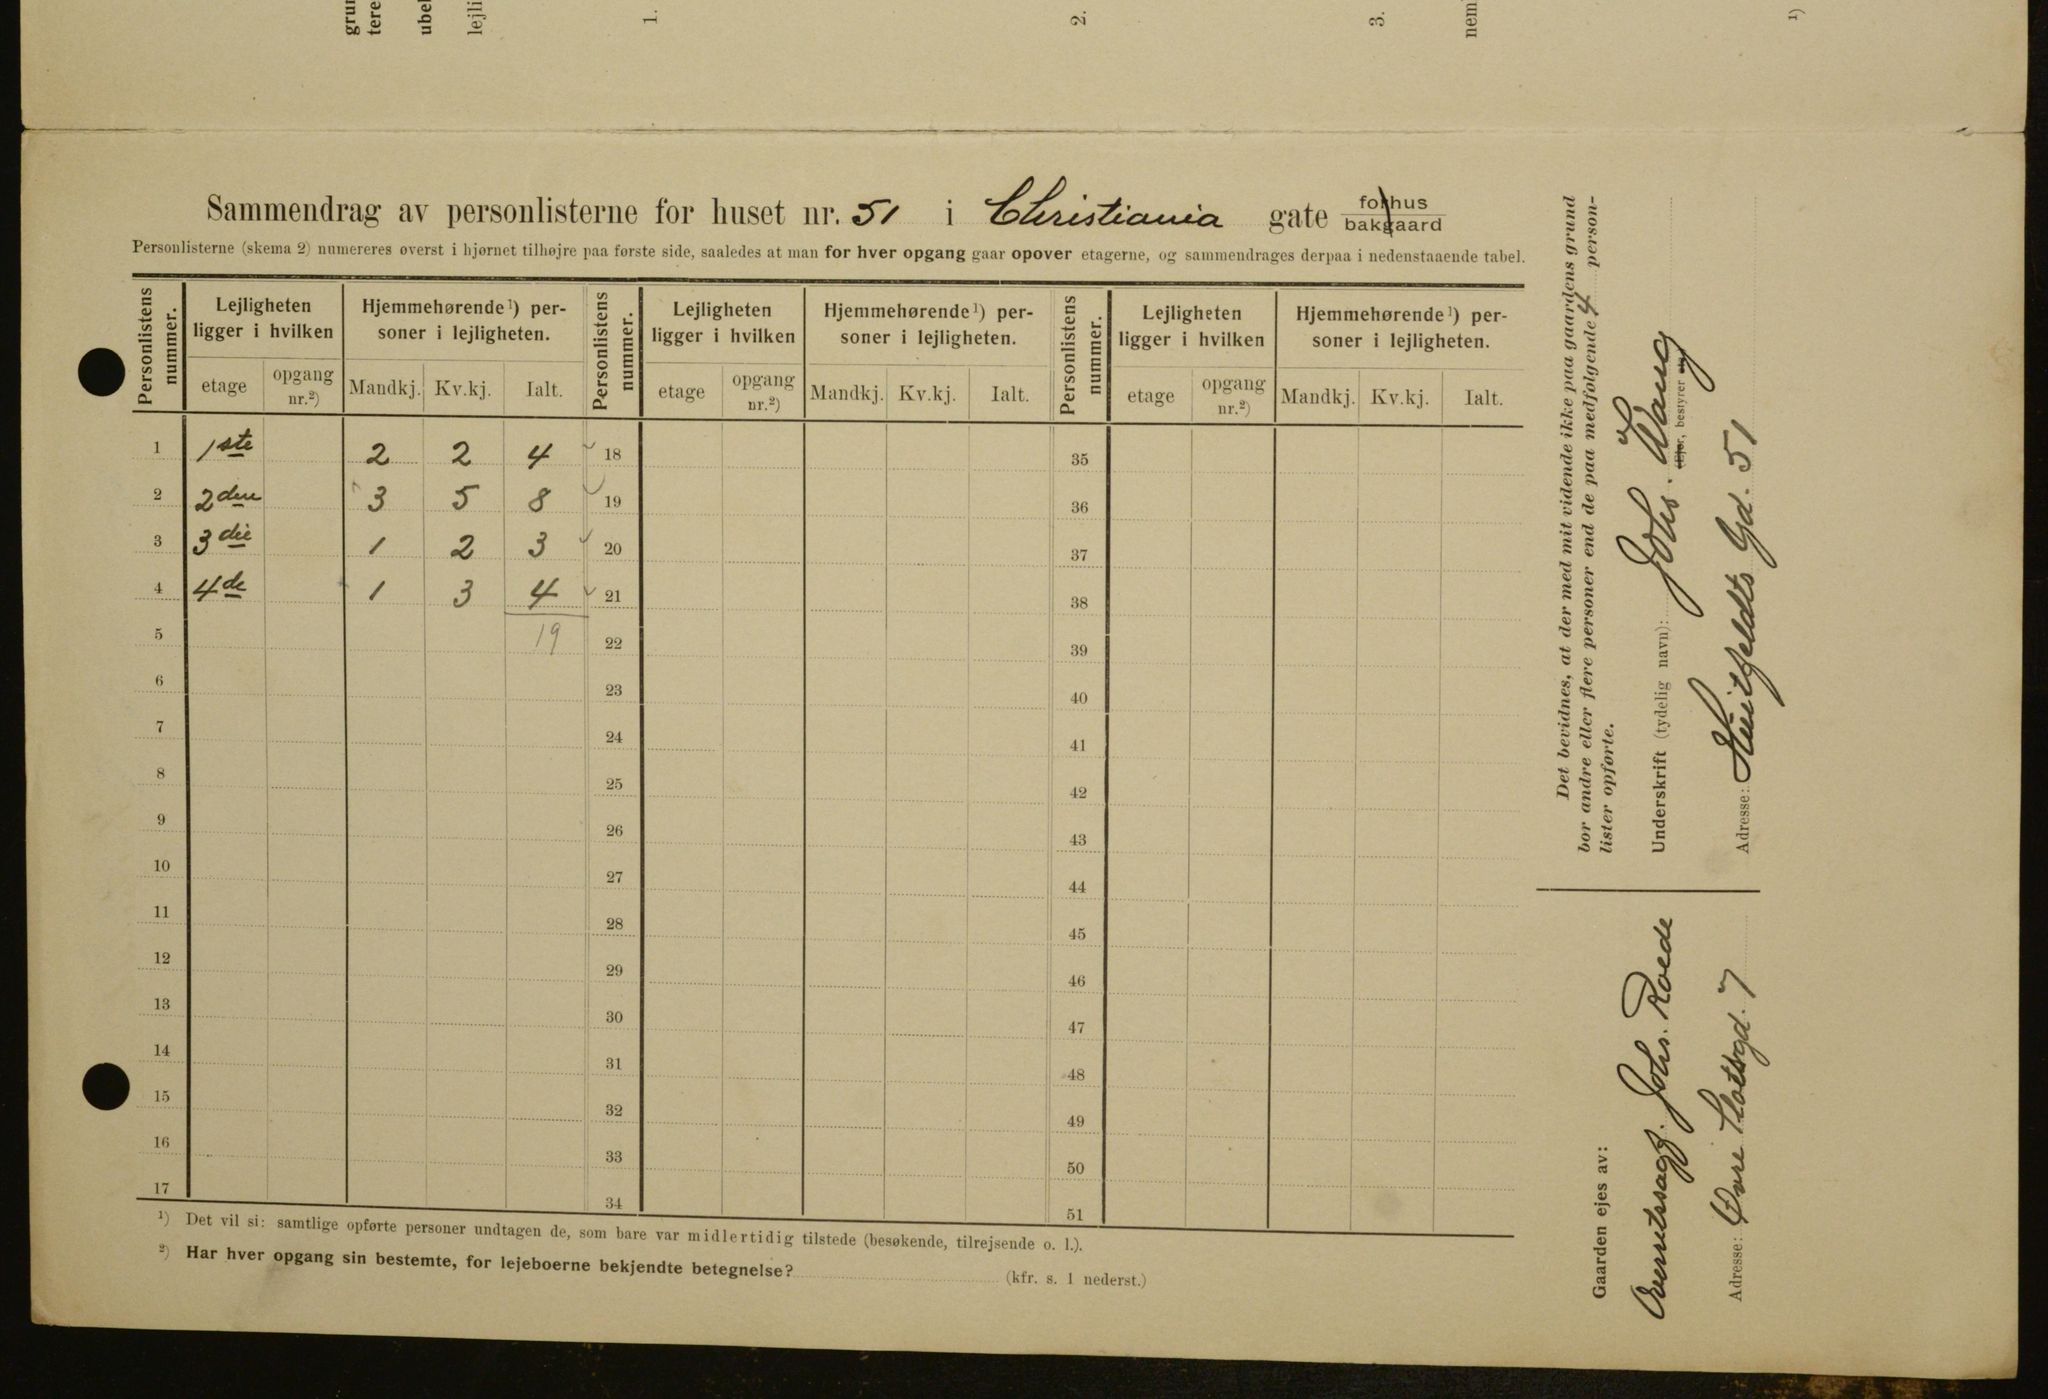 grun
tere
ubel
lejli
1.
2.
3.
nem
1)
Sammendrag av personlisterne for huset nr. 51 i Christiania gate forhus bakgaard
Personlisterne (skema 2) numereres øverst i hjørnet tilhøjre paa første side, saaledes at man for hver opgang gaar opover etagerne, og sammendrages derpaa i nedenstaaende tabel.
Personlistens nummer. Lejligheten ligger i hvilken Hjemmehørende ¹) personer i lejligheten. Personlistens nummer. Lejligheten ligger i hvilken Hjemmehørende ¹) personer i lejligheten. Personlistens nummer. Lejligheten ligger i hvilken Hjemmehørende ¹) personer i lejligheten.
etage opgang nr.²) Mandkj. Kv.kj. Ialt. etage opgang nr.²) Mandkj. Kv.kj. Ialt. etage opgang nr.²) Mandkj. Kv.kj. Ialt.
1 1ste 2 2 4 18 35
2 2den 3 5 8 19 36
3 3die 1 2 3 20 37
4 4de 1 3 4 21 38
5 19 22 39
6 23 40
7 24 41
8 25 42
9 26 43
10 27 44
11 28 45
12 29 46
13 30 47
14 31 48
15 32 49
16 33 50
17 34 51
¹) Det vil si: samtlige opførte personer undtagen de, som bare var midlertidig tilstede (besøkende, tilrejsende o. l.).
²) Har hver opgang sin bestemte, for lejeboerne bekjendte betegnelse? (kfr. s. 1 nederst.)
Det bevidnes, at der med mit vidende ikke paa gaardens grund
bor andre eller flere personer end de paa medfølgende 4 person-
lister opførte.
Underskrift (tydelig navn): Johs. Wang
(Ejer, bestyrer
Adresse: Huitfeldts Gd. 51
Gaarden ejes av:
Overretssagf. Johs. Roede
Adresse: Øvre Slotsgd. 7